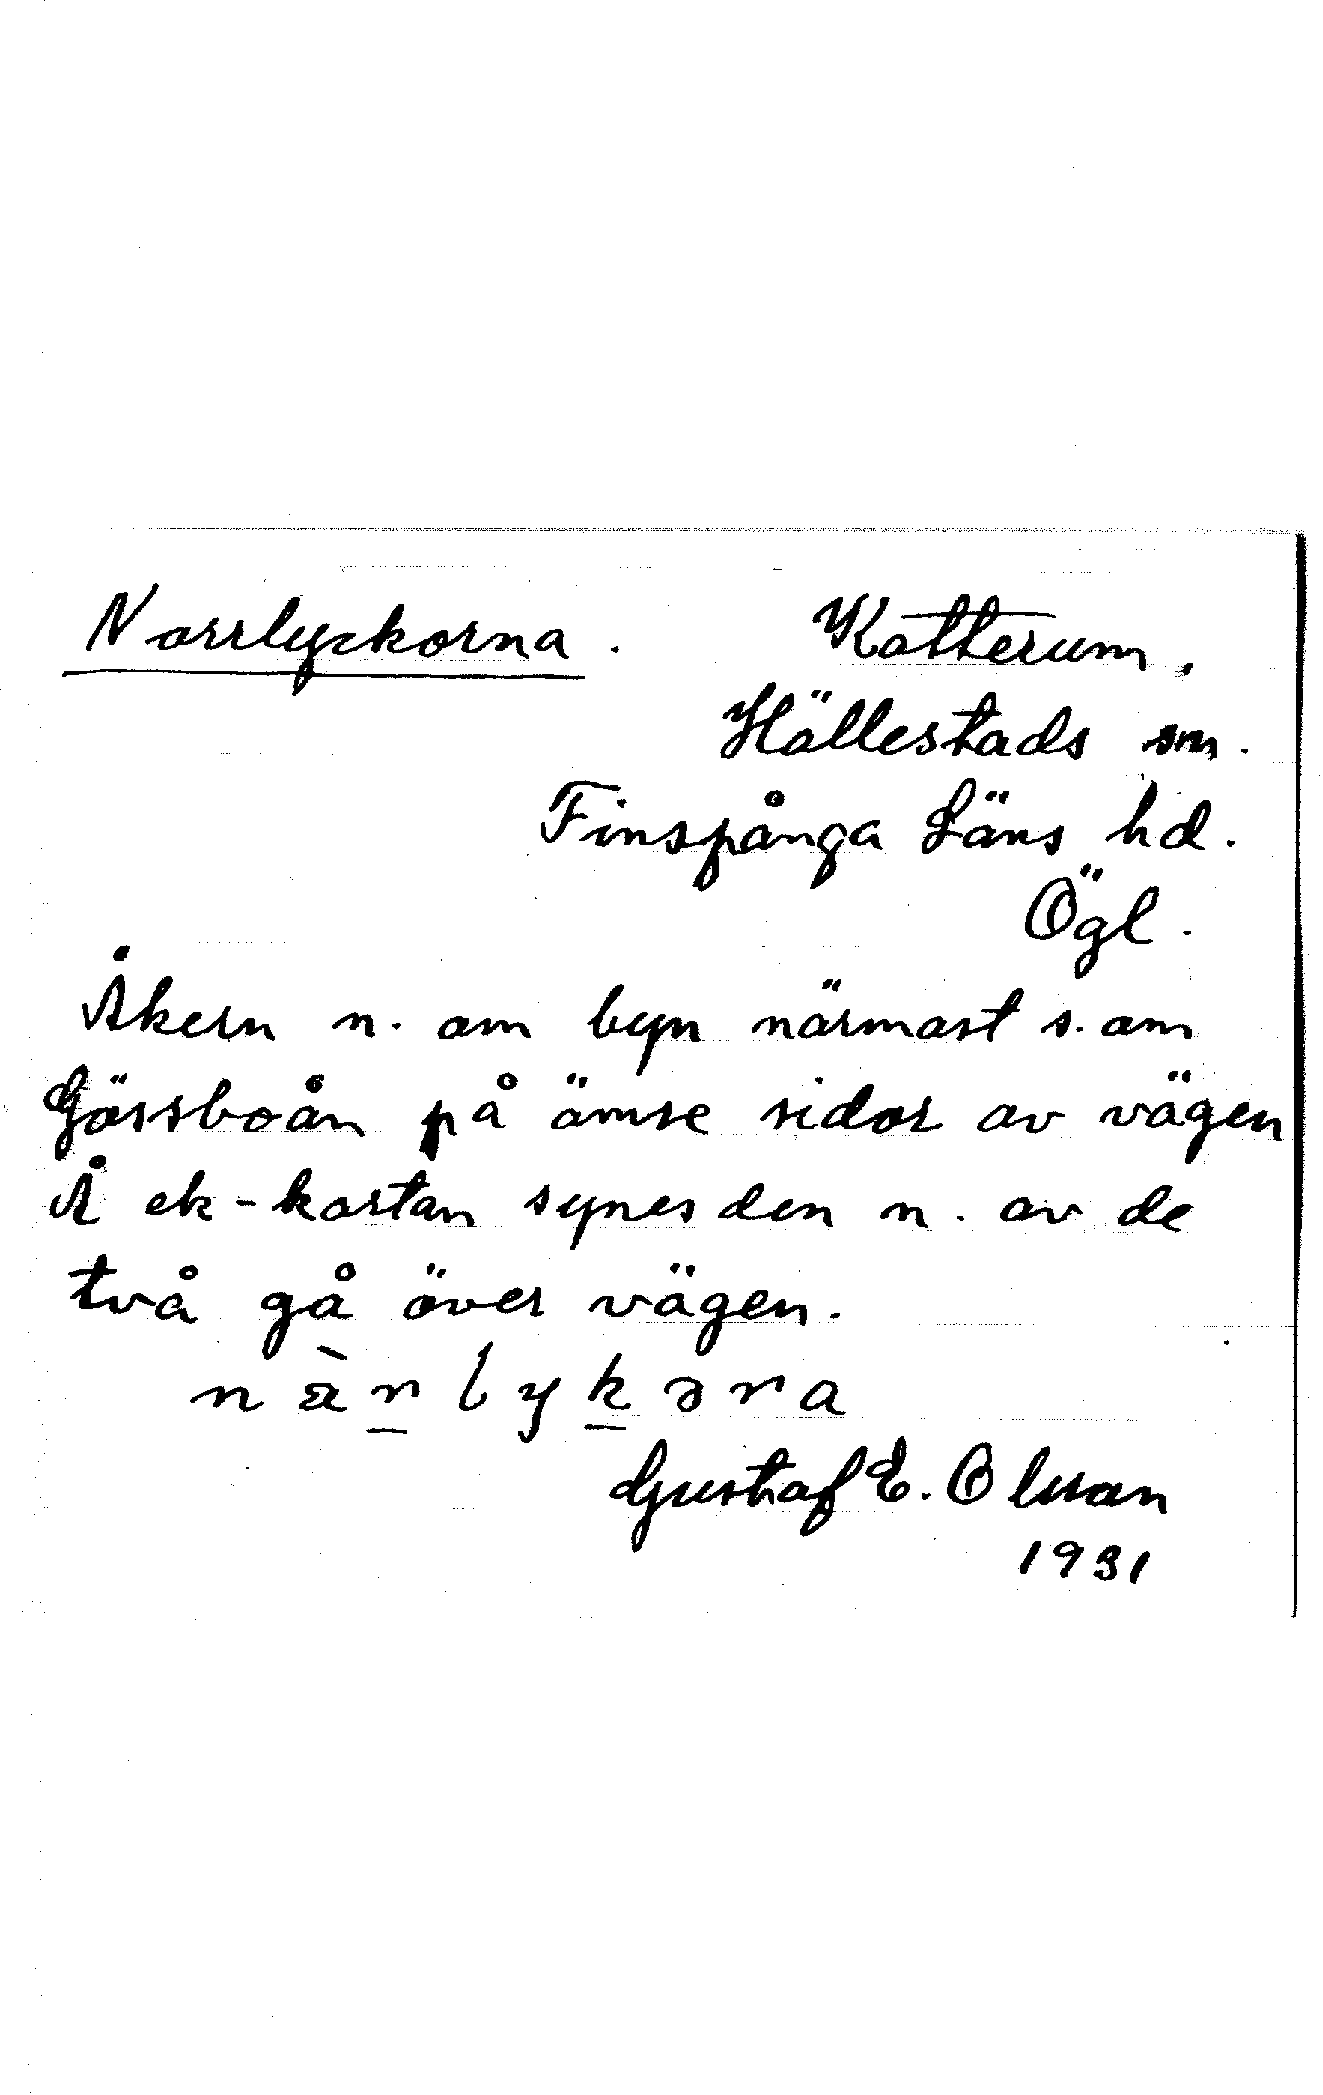 Norrlyckorna. Katterum,
Hällestads sn.
Finspånga Läns hd.
Ögl.
Åkern n. om byn närmast s. om
Görssboån på ömse sidor av vägen
Å ek-kartan synes den n. av de
två gå över vägen.
Gustaf E. Olsson
1931